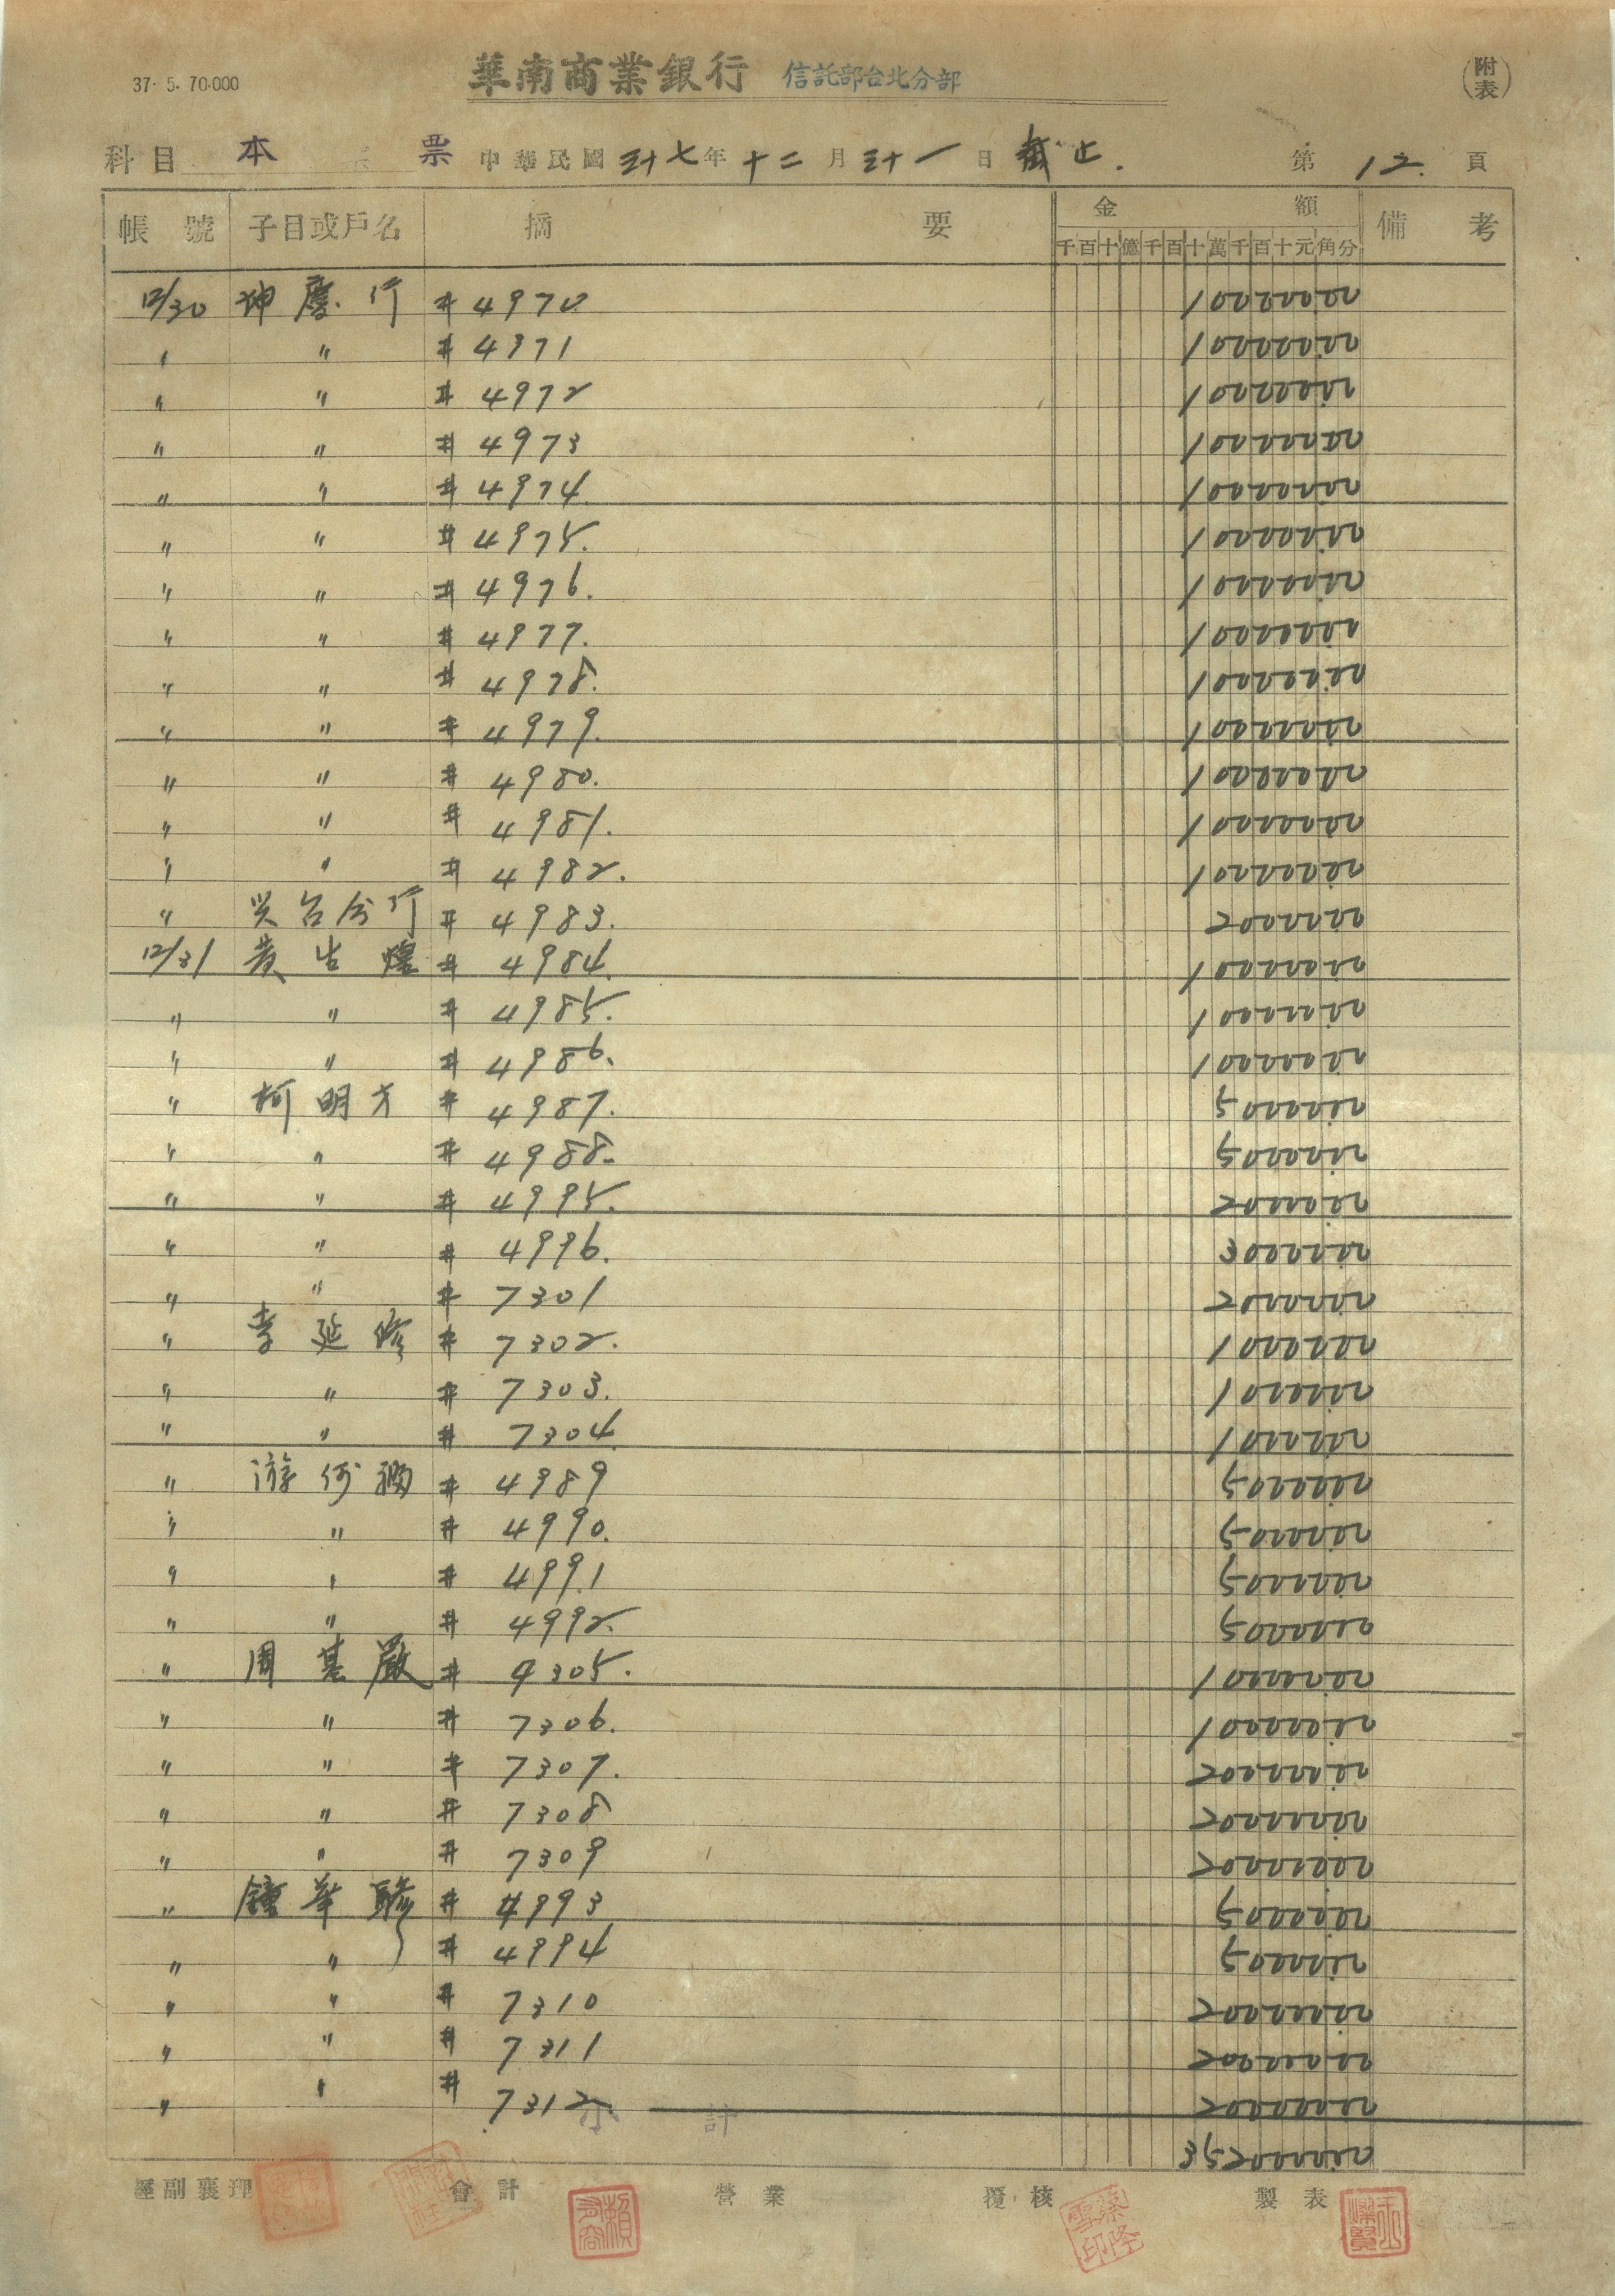 37. 5. 70.000
華南商業銀行 信託部台北分部
(附表)
科目 本票 中華民國 三十七 年 十二 月 三十一 日 截止. 第 12. 頁
帳號 子目或戶名 摘要 金額 備考
千百十億千百十萬千百十元角分
12/30 坤慶行 # 4970 10000000
〃 〃 # 4971 10000000
〃 〃 # 4972 10000000
〃 〃 # 4973 10000000
〃 〃 # 4974. 10000000
〃 〃 # 4975. 10000000
〃 〃 # 4976. 10000000
〃 〃 # 4977. 10000000
〃 〃 # 4978. 10000000
〃 〃 # 4979. 10000000
〃 〃 # 4980. 10000000
〃 〃 # 4981. 10000000
〃 〃 # 4982. 10000000
〃 台分行 # 4983. 2000000
12/31 黄煌 # 4984. 10000000
〃 〃 # 4985. 10000000
〃 〃 # 4986. 10000000
〃 柯明才 # 4987. 5000000
〃 〃 # 4988. 5000000
〃 〃 # 4995. 2000000
〃 〃 # 4996. 3000000
〃 〃 # 7301 2000000
〃 李延修 # 7302. 1000000
〃 〃 # 7303. 1000000
〃 〃 # 7304. 1000000
〃 游何 # 4989 5000000
〃 〃 # 4990. 5000000
〃 〃 # 4991 5000000
〃 〃 # 4992. 5000000
〃 周基嚴 # 10000000
〃 〃 # 7306. 10000000
〃 〃 # 7307. 20000000
〃 〃 # 7308 20000000
〃 〃 # 7309 20000000
〃 鍾華 # 4993 5000000
〃 〃 # 4994 5000000
〃 〃 # 7310 20000000
〃 〃 # 7311 20000000
〃 〃 # 7312 20000000
小計 352000000
經副襄理 會計 營業 覆核 製表